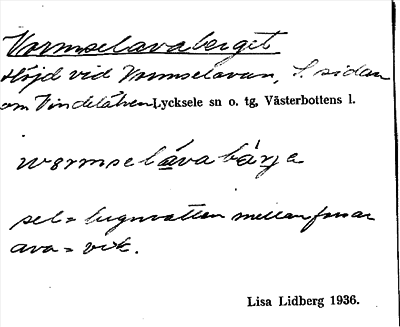 Vormselavaberget
Höjd vid Vormselavan, S. sidan
om Vindelälven. Lycksele sn o. tg, Västerbottens l.
wormselávabárja
sel = lugnvatten mellan forsar
ava = vik.
Lisa Lidberg 1936.